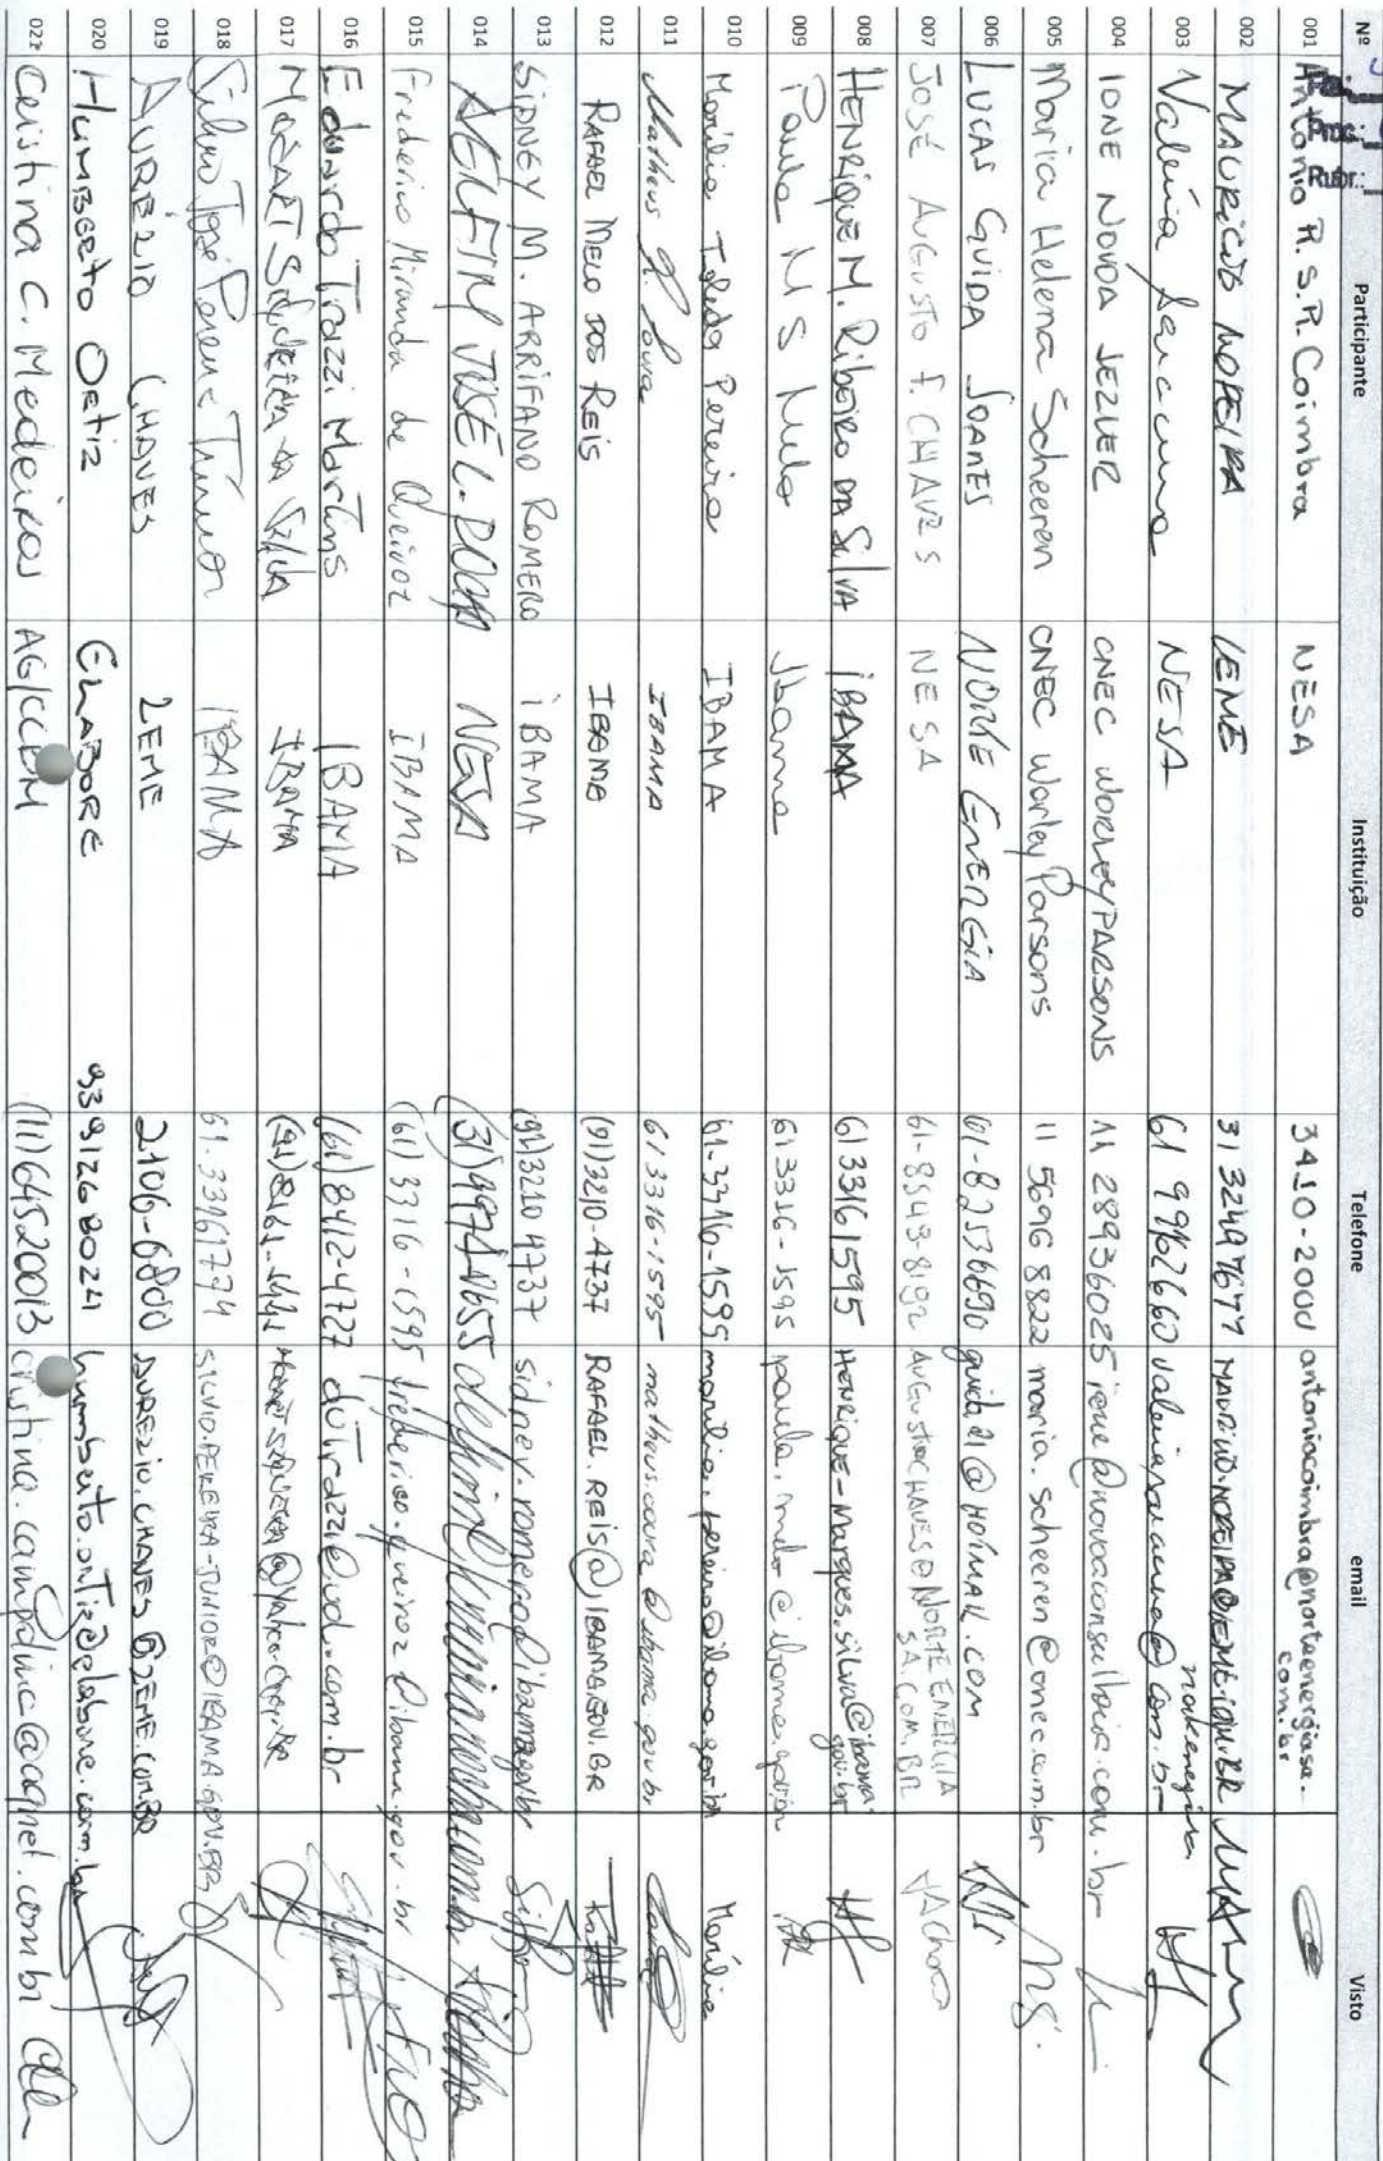 Nº Participante Instituição Telefone email Visto
Proc.:
Rubr.:
001 Antonio R. S. P. Coimbra NESA 3410-2000 antoniocoimbra@norteenergiasa.
com.br
002 MAURICIO MOREIRA LEME 31 32497677
003 Valéria Saracura NESA 61 99962660
004 IONE NOVOA JEZLER CNEC WORLEYPARSONS 11 28936025 ione@novoaconsultoria.com.br
005 Maria Helena Scheeren CNEC WorleyParsons 11 5696 8822 maria.scheeren@cnec.com.br
006 LUCAS GUIDA SOARES NORTE ENERGIA 61-82536690 guida21@HOTMAIL.COM
007 JOSÉ AUGUSTO F. CHAVES NESA 61-8549-8192 AUGUSTOCHAVES@NORTE ENERGIA
S.A.COM.BR
008 HENRIQUE M. Ribeiro DA SilVA iBAMA 61 33161595 HENRIQUE-Marques.silva@ibama.
gov.br
009 Paula M S Melo Ibama 61 3316-1595 paula.melo@ibama.gov.br
010 Marília Toledo Pereira IBAMA 61-3316-1595 marilia.pereira@ibama.gov.br Marília
011 Matheus IBAMA 61 3316-1595
012 RAFAEL MELO DOS REIS IBAMA (91) 3210-4737 RAFAEL.REIS@IBAMA.GOV.BR
013 SIDNEY M. ARRIFANO ROMERO iBAMA (91) 3210 4737 sidney.romero@ibama.gov.br
014 DELFIM JOSÉ L. ROCHA NESA
015 Frederico Miranda de Queiroz IBAMA (61) 3316-1595 frederico.queiroz@ibama.gov.br
016 Eduardo Trazzi Martins IBAMA (61) 8412-4727 dutrazzi@uol.com.br
017 MOZART SIQUEIRA DA SILVA IBAMA
018 Silvio José Pereira Júnior IBAMA 61-33161774 SILVIO.PEREIRA-JUNIOR@IBAMA.GOV.BR
019 AURÉLIO CHAVES LEME 2106-6800 AURELIO.CHAVES@LEME.COM.BR
020 HUMBERTO ORTIZ ELABORE 93 91268024 humberto.ortiz@elabore.com.br
021 Cristina C. Medeiros (11) 64520013